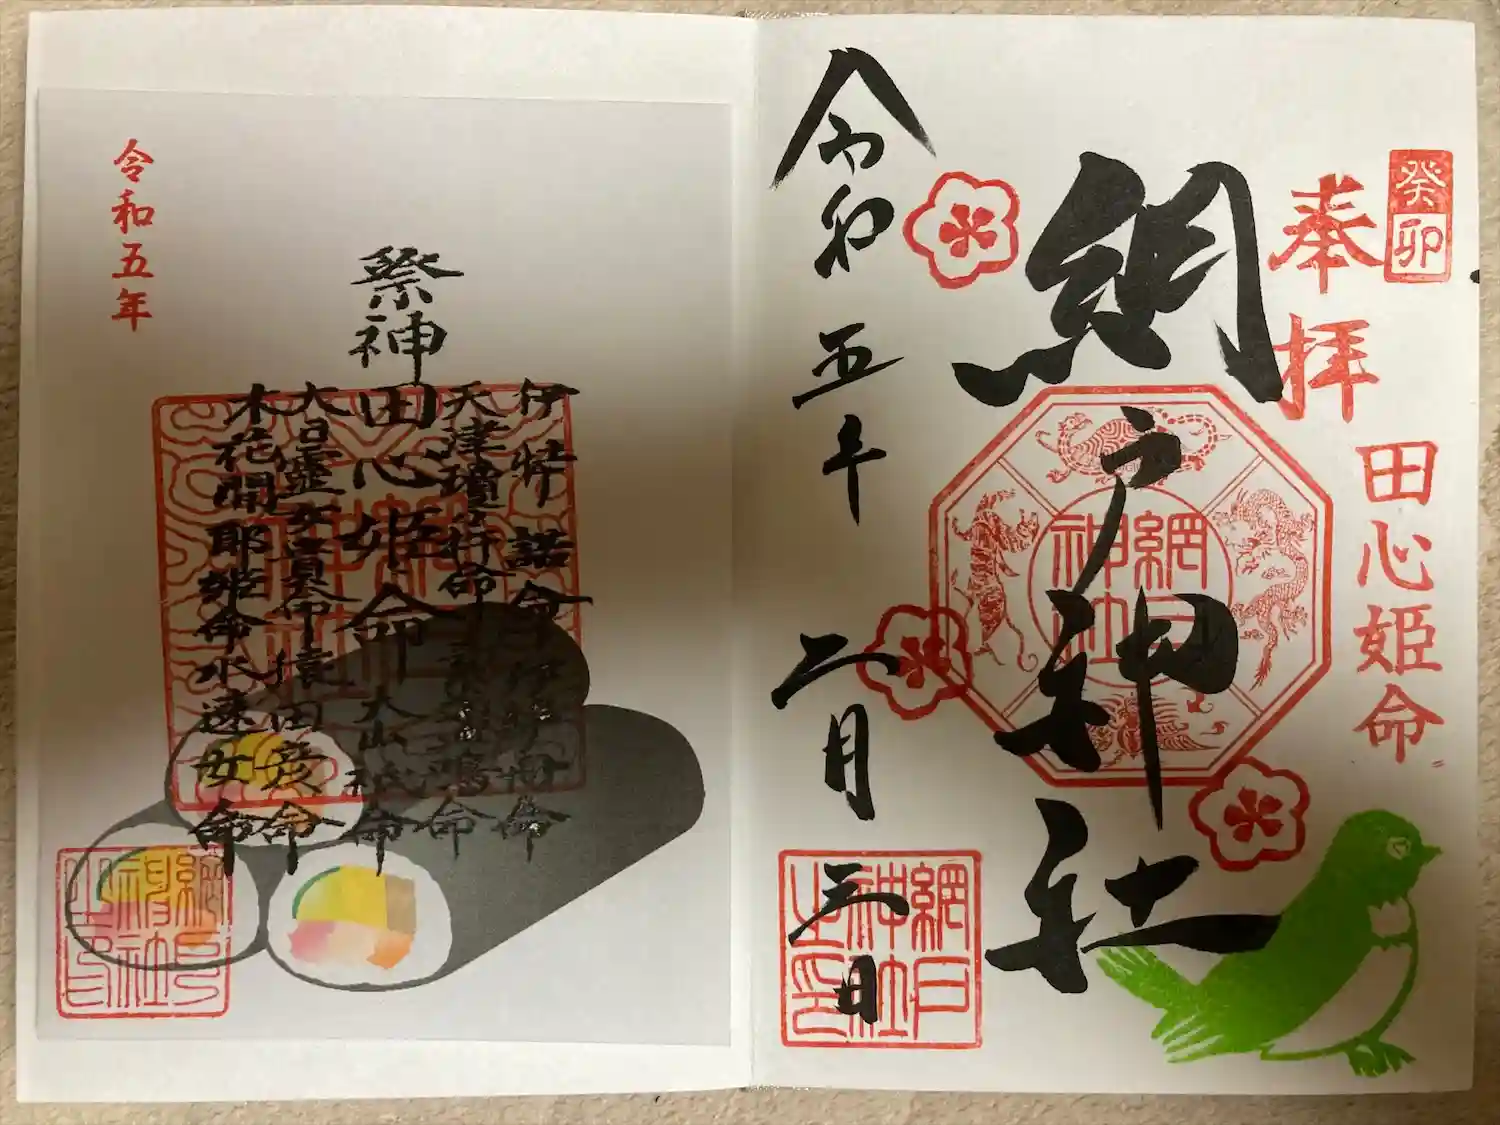 癸卯
奉拝
田心姫命
網戸神社
網戸神社
令和五年
二月
三日
網戸神社之印
祭神
伊弉諾命伊弉冉命
天津瓊々杵命
田心姫命
大山祇命
大日孁女貴命猿田彦命
木花開耶姫命水速女命
令和五年
網戸神社之印